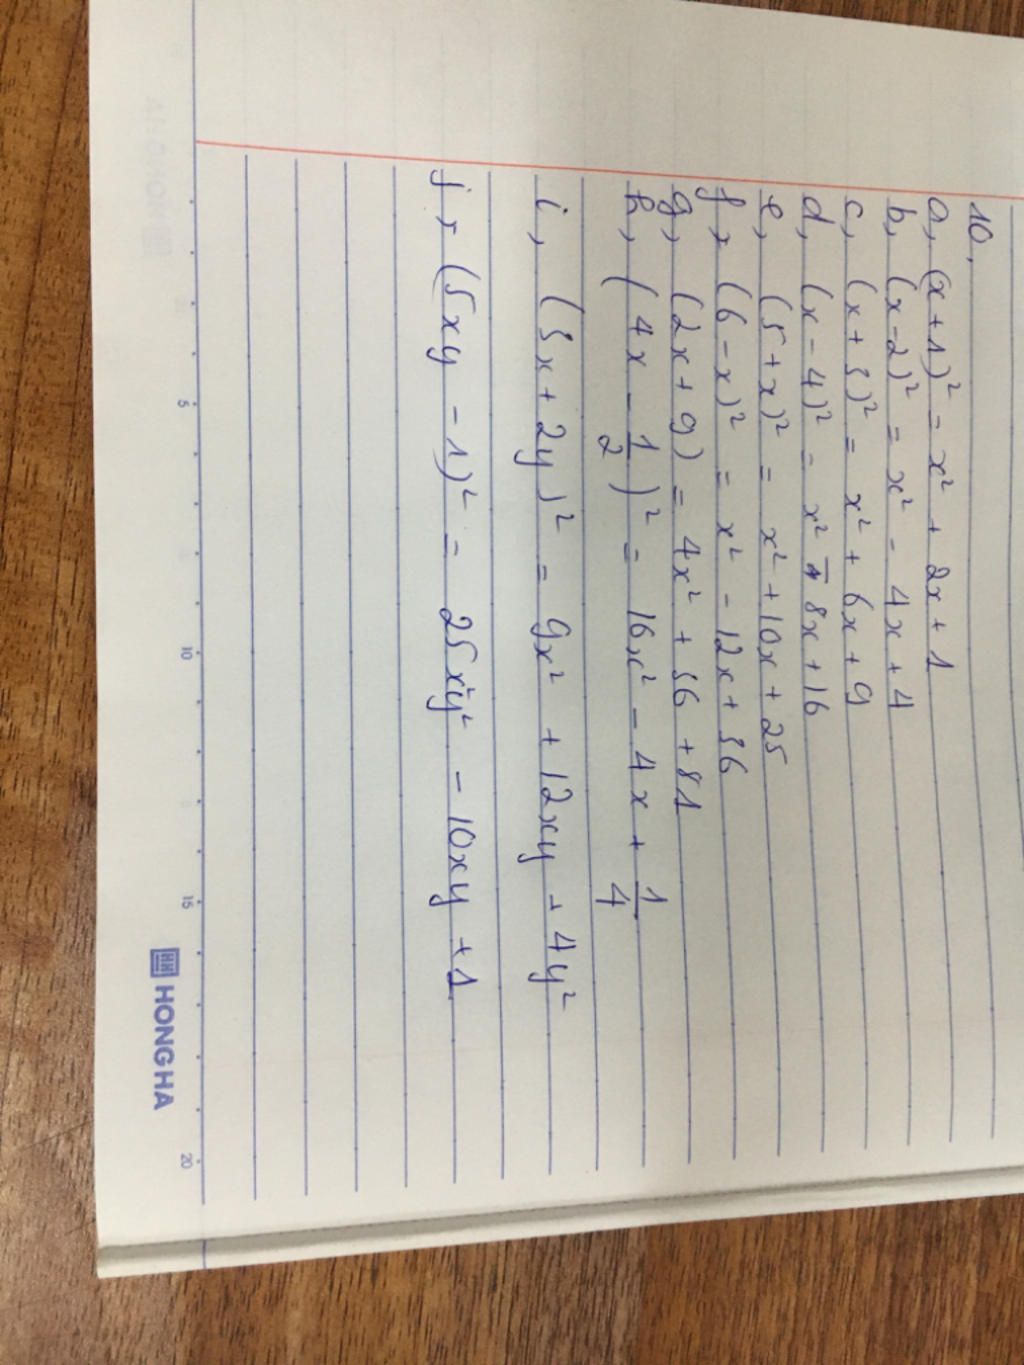 10,
a, (x+1)² = x² + 2x + 1
b, (x-2)² = x² - 4x + 4
c, (x+3)² = x² + 6x + 9
d, (x-4)² = x² - 8x + 16
e, (5+x)² = x² + 10x + 25
f, (6-x)² = x² - 12x + 36
g, (2x+9) = 4x² + 36 + 81
h, (4x - 1/2)² = 16x² - 4x + 1/4
i, (3x + 2y)² = 9x² + 12xy + 4y²
j, (5xy - 1)² = 25x²y² - 10xy + 1
5 10 15 20
HONG HA